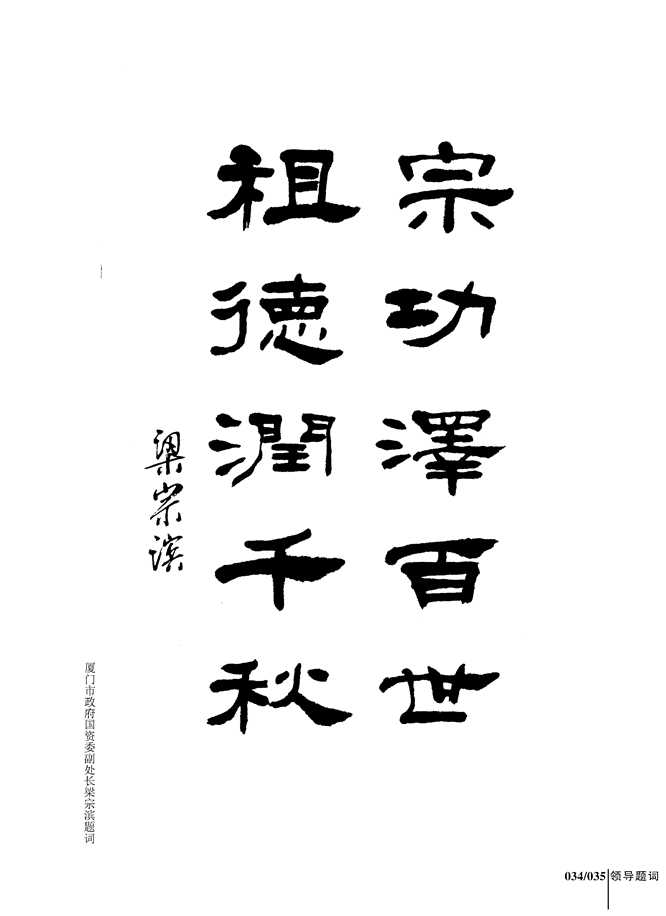 宗功澤百世
祖德潤千秋
梁宗滨
厦门市政府国资委副处长梁宗滨题词
034/035 领导题词